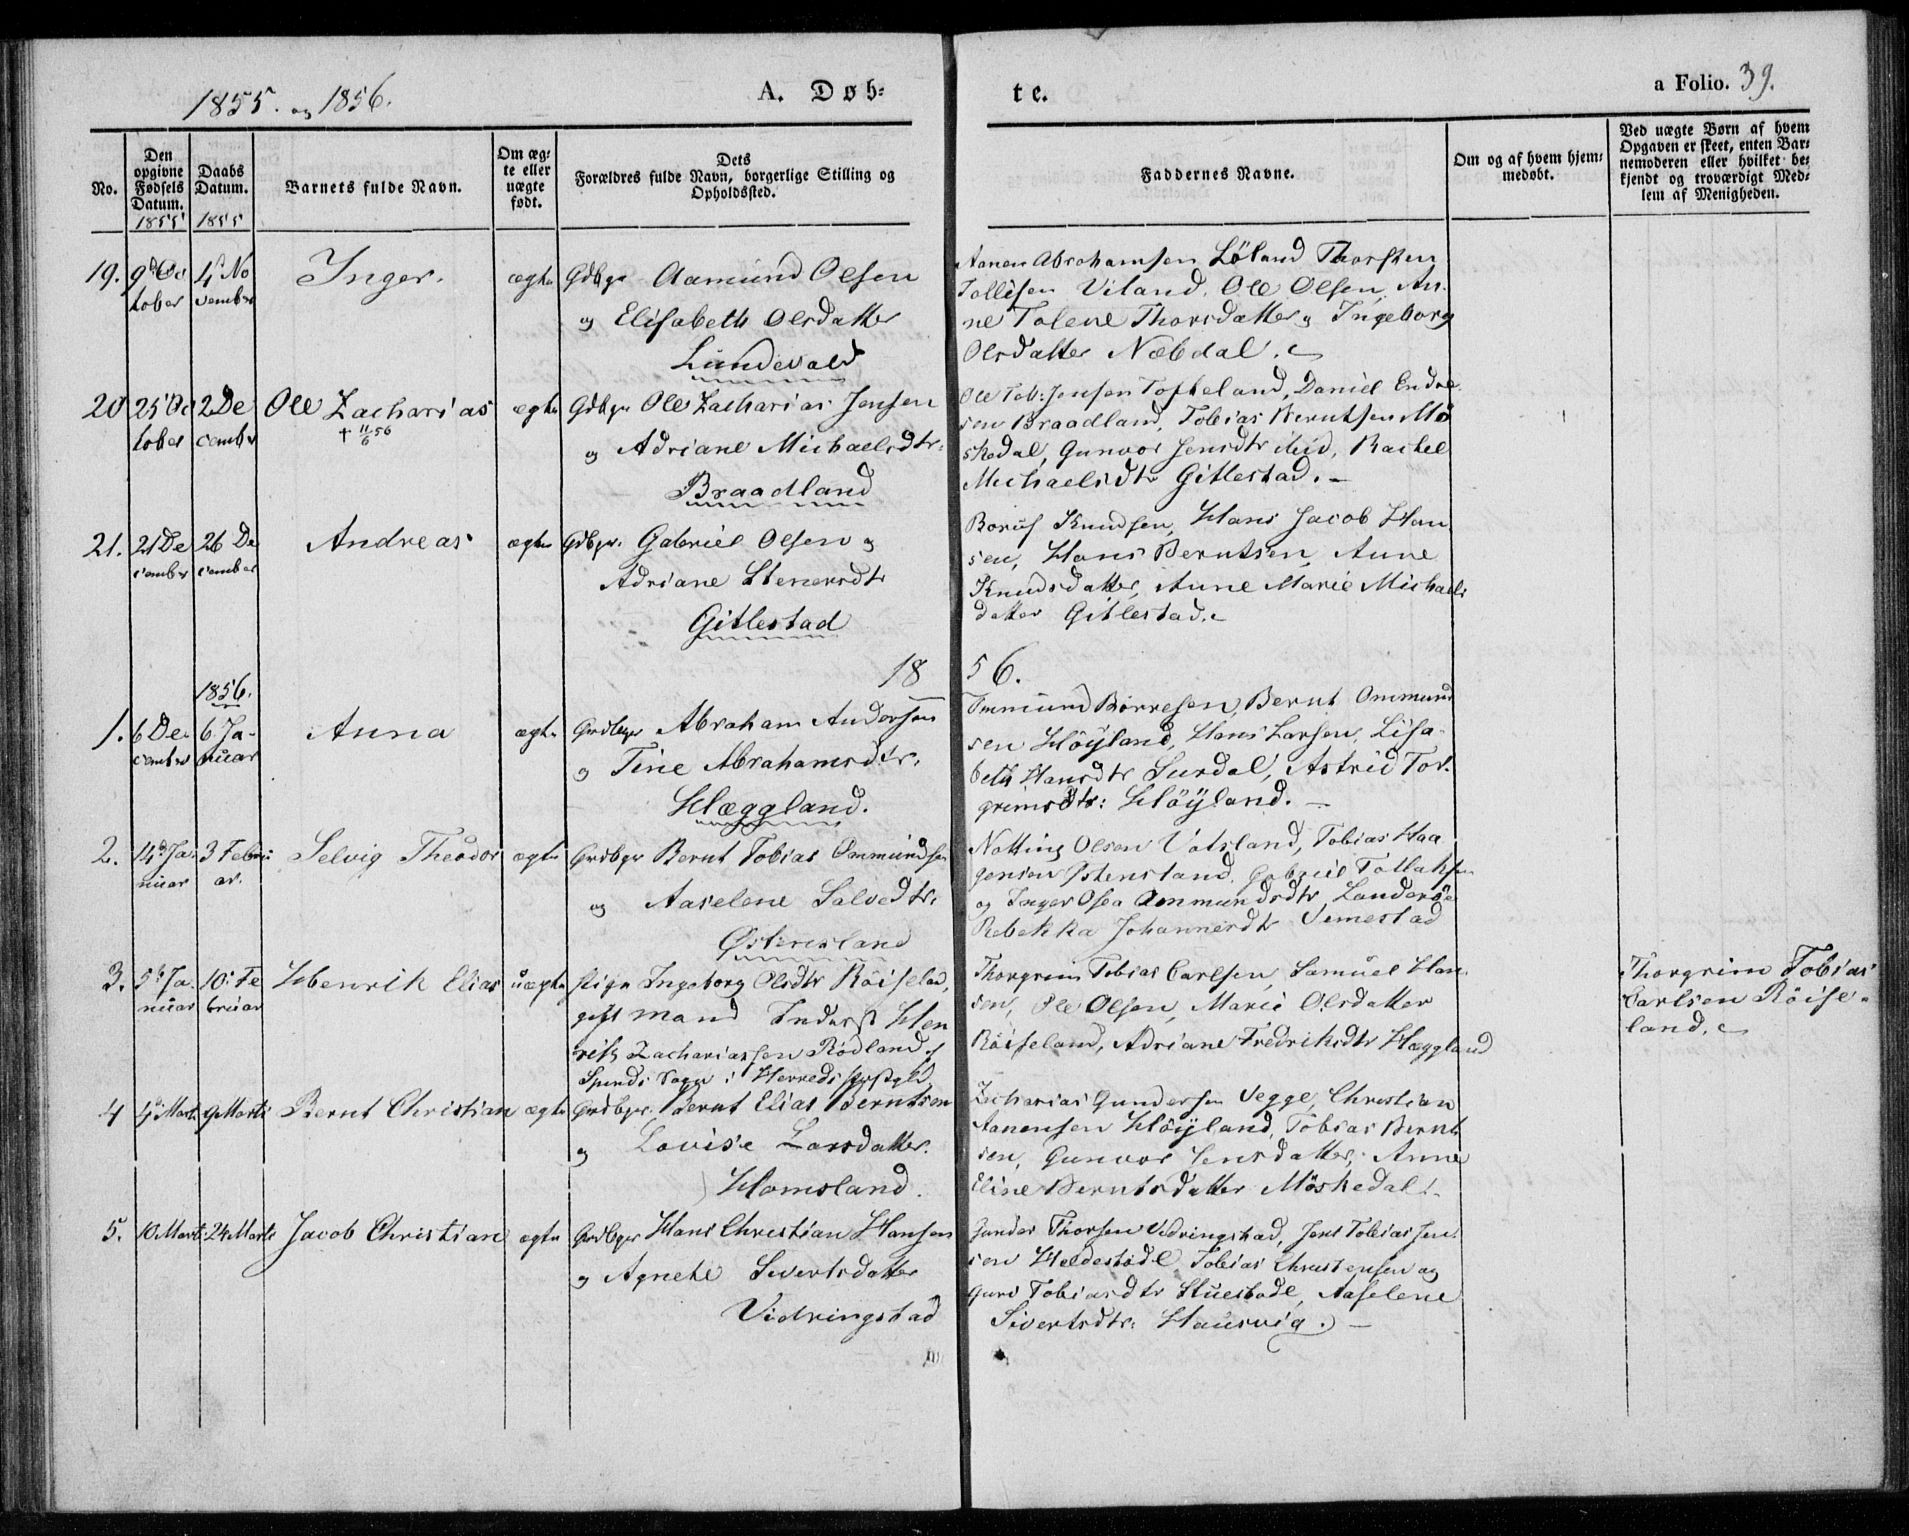 1855. og 1856.
A. Døb-
te.
a Folio. 39.
No.
Den opgivne Fødsels Datum.
1855
Daabs Datum.
1855
Barnets fulde Navn.
Om æg-
te eller
uægte
født.
Dets
Forældres fulde Navn, borgerlige Stilling og
Opholdssted.
Faddernes Navne.
Om og af hvem hjem-
medøbt.
Ved uægte Børn af hvem
Opgaven er skeet, enten Bar-
nemoderen eller hvilket be-
kjendt og troværdigt Med-
lem af Menigheden.
19. 9d Oc 4d No Inger. ægte Gdbgr Aamund Olsen
tober vember
og Elisabeth Olsdatter
Lundevold
Aanen Abrahamsen Löland Thorsten
Tollisen Viland. Ole Olsen, An-
ne Tolene Thorsdatter og Ingeborg
Olsdatter Næbdal.
20 25 Oc 2 De Ole Zacharias ægte Gdbgr Ole Zacharias Jensen
tober cembr † 11/6 56
og Adriane Michaelsdtr:
Braadland
Ole Tob: Jensen Tofteland, Daniel Endre
sen Braadland, Tobias Berntsen Mö
skedal, Gunvor Jensdtr ibid, Rachel
Michaelsdtr Gitlestad. -
21. 21 De 26 De Andreas ægte Gdbgr. Gabriel Olsen og
cember cember
Adriane Stenersdtr
Gitlestad
Knudsen, Hans Jacob Han
sen, Hans Berntsen, Anne
Knudsdatter, Anne Marie Michaels
datter Gitlestad.
18 56.
1856.
1. 6 De 6 Ja- Anna ægte Grdbgr Abraham Andersen
cember nuar
og Tine Abrahamsdtr.
Hæggland.
Ommund Börresen, Bernt Ommund
sen Höyland, Hans Larsen, Lisa-
beth Hansdtr Surdal, Astrid Tor-
grimsdtr: Höyland. -
2. 14d Ja- 3 Febru Selvig Theodor ægte Grdbgr Bernt Tobias Ommundsen
nuar ar.
og Aaselene Salvesdtr.
Østensland
Notting Olsen Vatsland, Tobias Haa
gensen Østensland. Gabriel Tollaksen
og Inger Osea Ommundsdtr
Rebekka Johannesdtr Vemestad
3. 5d Ja- 10: Fe Henrik Elias uægte Pige Ingeborg Olsdtr Röiseland,
nuar bruar
gift Mand Inderst Hen
rik Zachariassen Rödland af
Spinds Sogn i Herreds Prstgld
Thorgrim Tobias Carlsen, Samuel Han
sen, Ole Olsen, Marie Olsdatter
Röiseland, Adriane Fredriksdtr Hæggland
Thorgrim Tobias
Carlsen Röise-
land.
4 4d Marts 9 Marts Bernt Christian ægte Grdbgr. Bernt Elias Berntsen
og Lovise Larsdatter.
Homsland.
Zacharias Gundersen Vegge, Christian
Aanensen Höyland, Tobias Bernt
sen, Gunvor Jensdatter, Anne
Eline Berntsdatter Möskedal.
5. 10 Marts 24 Marts Jacob Christian ægte Grdbgr Hans Christian Hansen
og Agnete Sivertsdatter
Vidringstad
Gunder Thorsen Vidringstad, Jens Tobias Jen-
sen Tobias Christensen og
Guro Tobiasdtr Stuestöle, Aaselene
Sivertsdtr: Hausvig. -